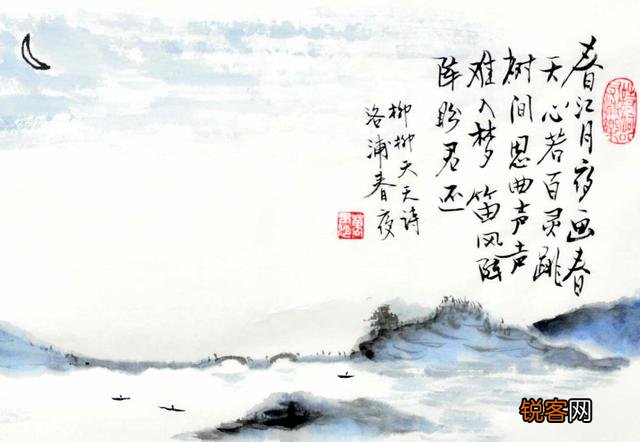 春江月夜画春
天心若百灵跳
树间思曲声声
难入梦笛风阵
阵盼君还
柳柳天天诗
洛浦春夜
锐客网